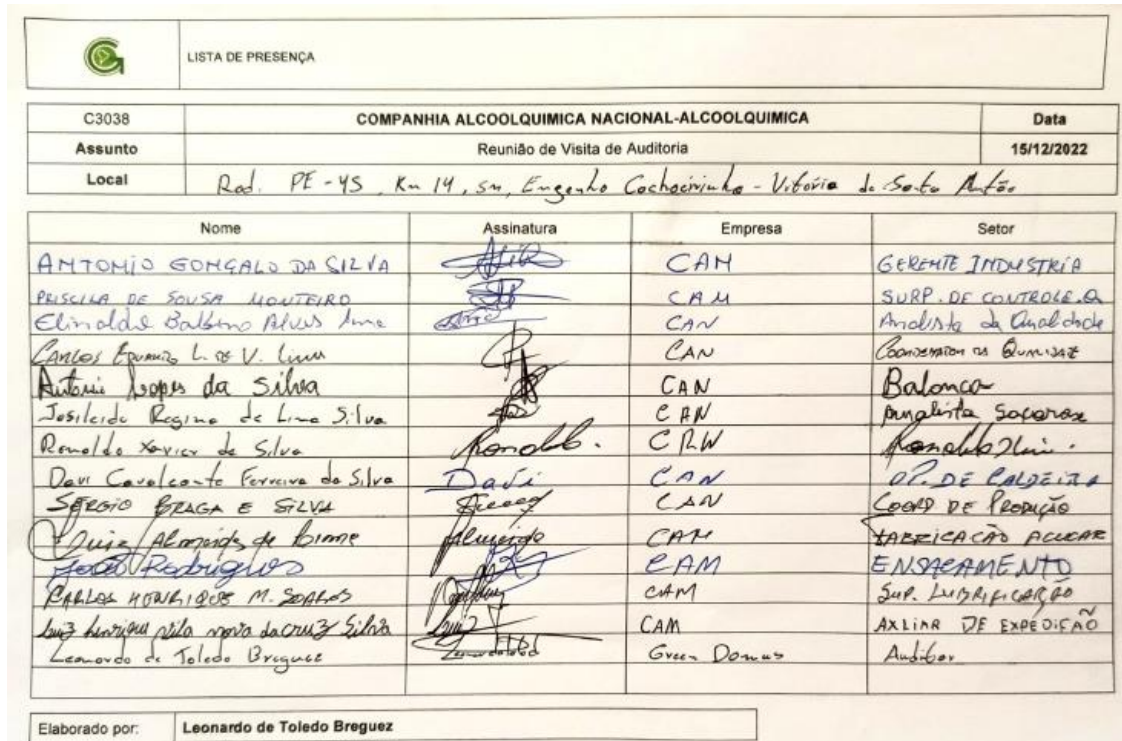 LISTA DE PRESENÇA
C3038 COMPANHIA ALCOOLQUIMICA NACIONAL-ALCOOLQUIMICA Data
Assunto Reunião de Visita de Auditoria 15/12/2022
Local Rod. PE-45, Km 14, sn, Engenho Cachoeirinha - Vitória de Santo Antão
Nome Assinatura Empresa Setor
ANTONIO GONÇALO DA SILVA CAN GERENTE INDUSTRIA
PRISCILA DE SOUSA MONTEIRO CAN SURP. DE CONTROLE.Q
Elinaldo Balbino Alves CAN Analista da Qualidade
CARLOS EDUARDO L. DE V. Lima CAN COORDENADOR DA QUALIDADE
Antonio Lopes da Silva CAN Balança
Josileide Regina de Lima Silva CAN Analista Sacarose
Ronaldo Xavier da Silva Ronaldo. CRW Ronaldo
Davi Cavalcante Ferreira da Silva Davi CAN OP. DE CALDEIRA
SERGIO BRAGA E SILVA CAN COORD DE PRODUÇÃO
Luiz Almeida de Almeida CAN FABRICAÇÃO ACUCAR
João Rodrigues CAM ENSACAMENTO
CARLOS HENRIQUE M. SOARES CAM SUP. LUBRIFICAÇÃO
Luiz henrique vila nova da cruz Silva Luiz CAM AXLIAR DE EXPEDIÇÃO
Leonardo de Toledo Breguez Green Domus Auditor
Elaborado por: Leonardo de Toledo Breguez